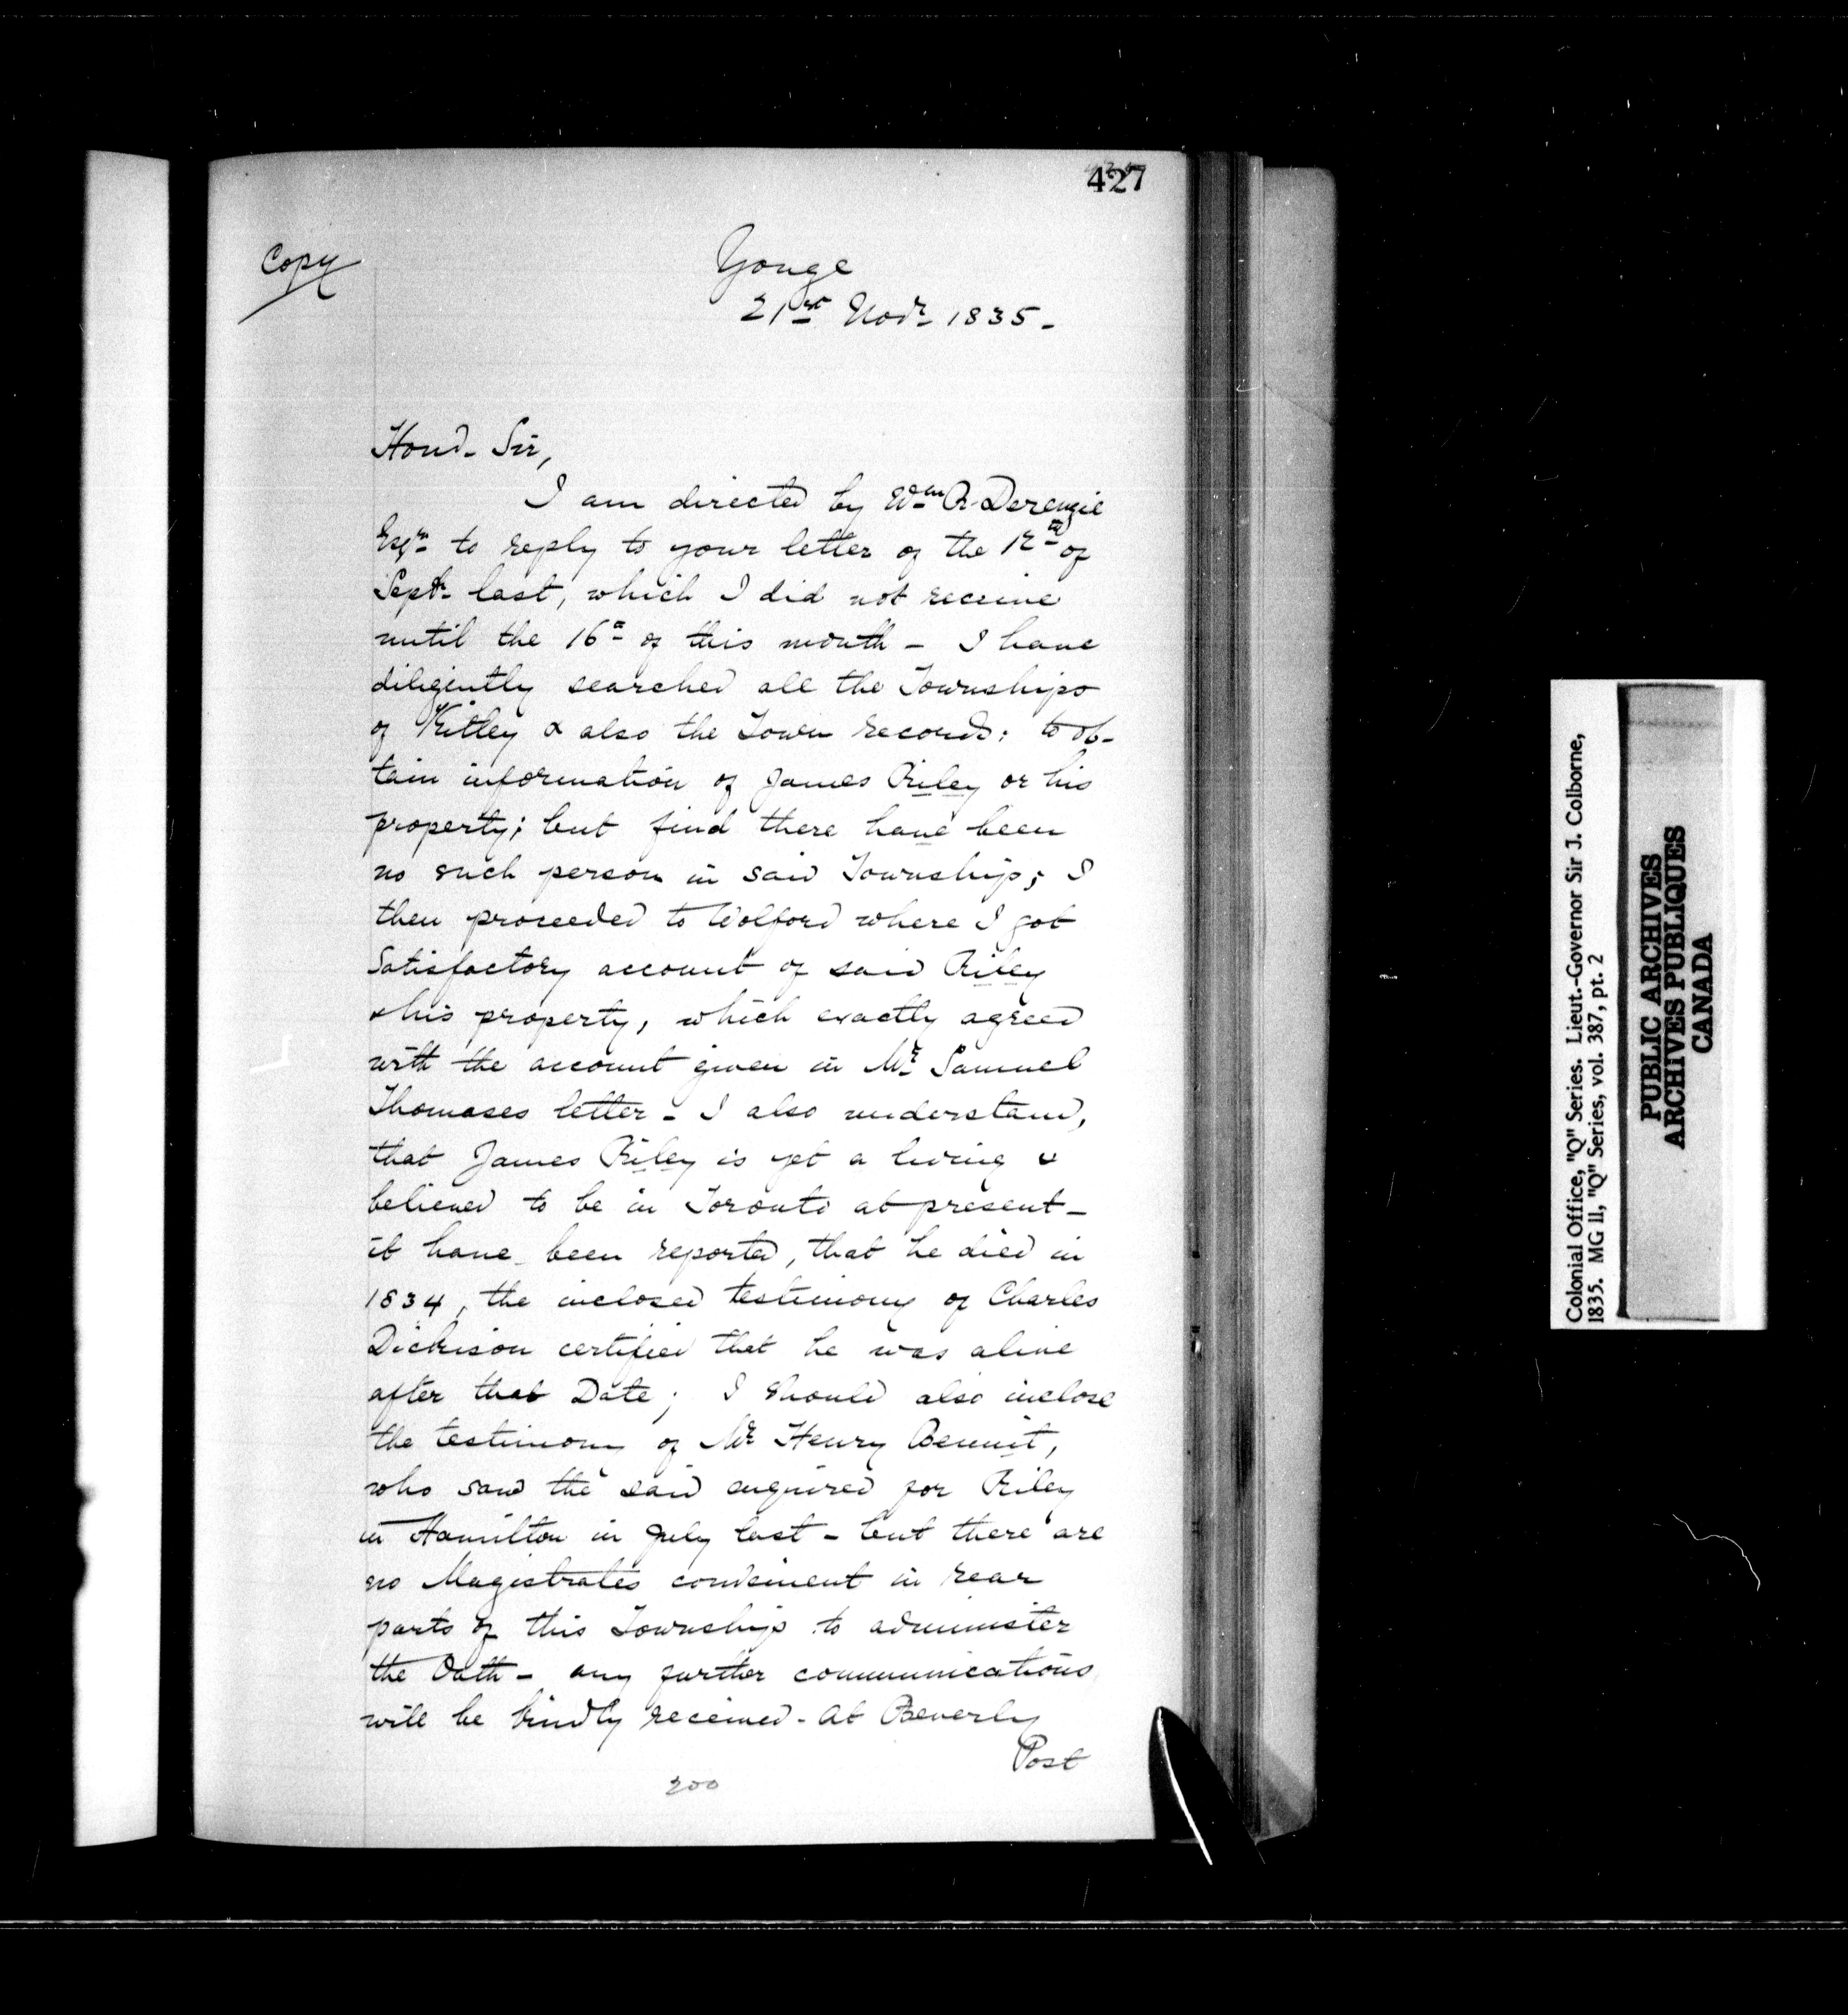 427
Copy
Yonge
21st Novr 1835-
Hond- Sir,
I am directed by Wm R. Derenzie
Esqr to reply to your letter of the 12th of
Septr last, which I did not receive
until the 16th of this month - I have
diligently searched all the Townships
of Kitley & also the Town records: to ob-
tain information of James Riley or his
property; but find there have been
no such person in said Township; I
then proceeded to Wolford where I got
Satisfactory account of said Riley
& his property, which exactly agreed
with the account given in Mr Samuel
Thomases letter - I also understand,
that James Riley is yet a living &
believed to be in Toronto at present -
it have been reported, that he died in
1834, the inclosed testimony of Charles
Dickison certified that he was alive
after that Date; I should also inclose
the testimony of Mr Henry Bennit,
who saw the said enquired for Riley
in Hamilton in July last - but there are
no Magistrates convenient in rear
parts of this Township to administer
the Oath - any further communications
will be kindly received - at Beverly
Post
200
Colonial Office, "Q" Series. Lieut.-Governor Sir J. Colborne,
1835. MG II, "Q" Series, vol. 387, pt. 2
PUBLIC ARCHIVES
ARCHIVES PUBLIQUES
CANADA